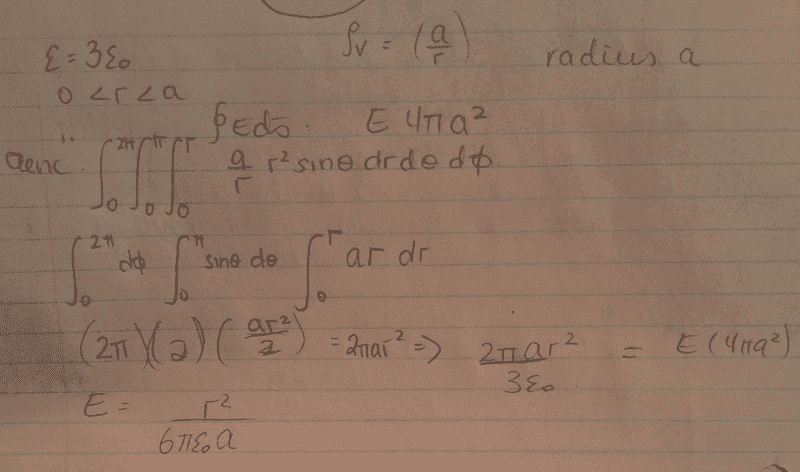 ε = 3ε₀ ρv = (a/r) radius a
0 < r < a
∮EdS. E 4πa²
Qenc: ∫₀^2π ∫₀^π ∫₀^r a/r r² sinθ dr dθ dϕ
∫₀^2π dϕ ∫₀^π sinθ dθ ∫₀^r ar dr
(2π)(2)(ar²/2) = 2πar² => 2πar²/3ε₀ = E(4πa²)
E = r²/6πε₀a